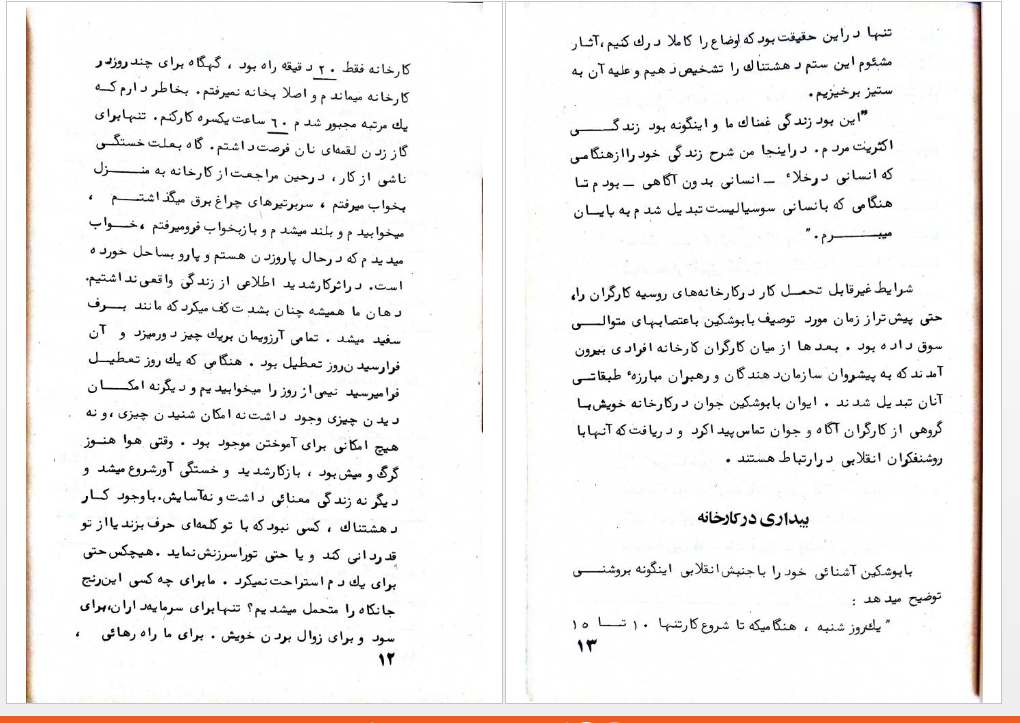 کارخانه فقط ۲۰ دقیقه راه بود ، گهگاه برای چند روز در
کارخانه میماندم و اصلا بخانه نمیرفتم. بخاطر دارم کـه
یك مرتبه مجبور شدم ٦۰ ساعت یکسره کارکنم. تنها برای
گاز زدن لقمه‌ای نان فرصت داشتم. گاه بعلت خستگـی
ناشی از کار ، درحین مراجعت از کارخانه به منـــــزل
بخواب میرفتم ، سربرتیرهای چراغ برق میگذاشتــــم ،
میخوابیدم و بلند میشدم و بازبخواب فرومیرفتم ،خـــواب
میدیدم که درحال پاروزدن هستم و پارو بساحل خورده
است. دراثرکارشدید اطلاعی از زندگی واقعی نداشتیم.
دهان ما همیشه چنان بشدت کف میکرد که مانند بـــرف
سفید میشد . تمامی آرزویمان بریك چیز دورمیزد و آن
فرارسیدن روز تعطیل بود . هنگامی که یك روز تعطیـــل
فرامیرسید نیمی از روز را میخوابیدیم و دیگرنه امکـــان
دیدن چیزی وجود داشت نه امکان شنیدن چیزی ،و نه
هیچ امکانی برای آموختن موجود بود . وقتی هوا هنـوز
گرگ و میش بود ، بازکارشدید و خستگی آورشروع میشد و
دیگر نه زندگی معنائی داشت و نه آسایش.باوجود کــار
دهشتناك ، کسی نبود که با تو کلمه‌ای حرف بزند یا از تو
قدردانی کند و یا حتی توراسرزنش نماید .هیچکس حتی
برای یك دم استراحت نمیکرد . مابرای چه کسی این رنج
جانکاه را متحمل میشدیم؟ تنها برای سرمایه‌داران،برای
سود و برای زوال بردن خویش . برای ما راه رهائی ،
۱۲
تنها در این حقیقت بود که اوضاع را کاملا درك کنیم ،آثار
مشئوم این ستم دهشتناك را تشخیص دهیم و علیه آن به
ستیز برخیزیم.
"این بود زندگی غمناك ما و اینگونه بود زندگـــــی
اکثریت مردم. دراینجا من شرح زندگی خود را از هنگامی
که انسانی درخلاء ـ انسانی بدون آگاهی ـ بودم تا
هنگامی که بانسانی سوسیالیست تبدیل شدم به پایــان
میبــــــــرم."
شرایط غیرقابل تحمـل کار درکارخانه‌های روسیه کارگران را،
حتی پیش تراز زمان مورد توصیف بابوشکین باعتصابهای متوالـــی
سوق داده بود . بعدها از میان کارگران کارخانه افرادی بیرون
آمدند که به پیشروان سازمان‌دهندگان و رهبران مبارزهٔ طبقاتـی
آنان تبدیل شدند . ایوان بابوشکین جوان درکارخانه خویش بـا
گروهی از کارگران آگاه و جوان تماس پیدا کرد و دریافت که آنها با
روشنفکران انقلابی در ارتباط هستند .
بیداری در کارخانه
بابوشکین آشنائی خود را باجنبش انقلابی اینگونه بروشنــــی
توضیح میدهد :
"یك‌روز شنبه ، هنگامیکه تا شروع کارتنها ۱۰ تـــا ۱۵
۱۳